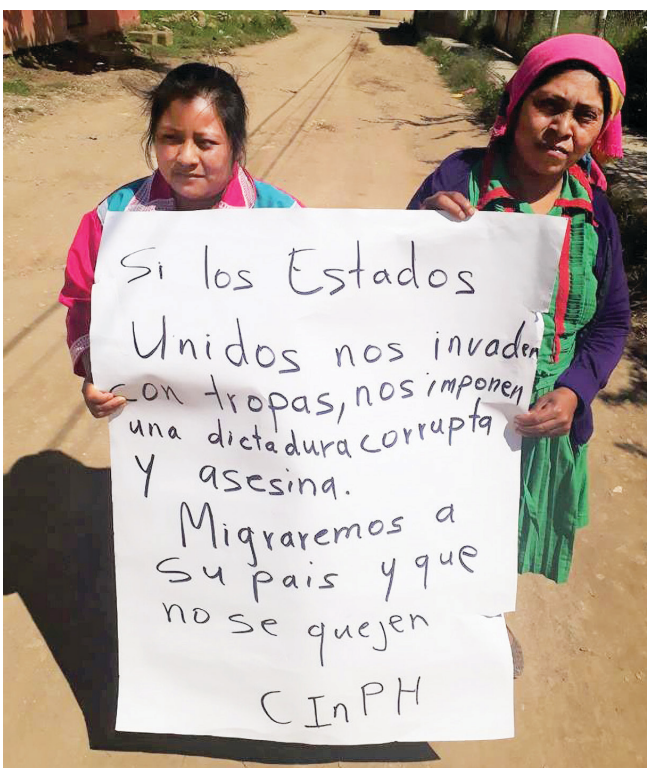 Si los Estados
Unidos nos invaden
con tropas, nos imponen
una dictadura corrupta
y asesina.
Migraremos a
su pais y que
no se quejen
CInPH